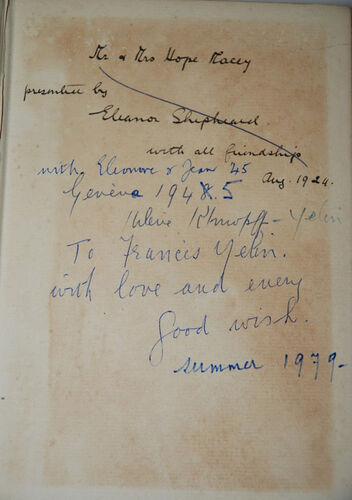 Mr & Mrs Hope Macey
presented by
Eleanor Shipheard.
with all friendship
Aug. 1924.
with Eleonore & Jean 45
Genève 1945
Yelin
To Francis Yelin.
with love and every
good wish.
summer 1979-